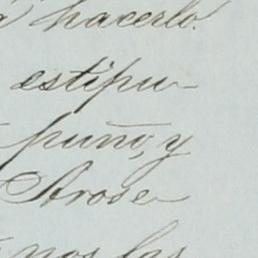 á hacerlo.
estipu-
puño, y
Arose-
nos las